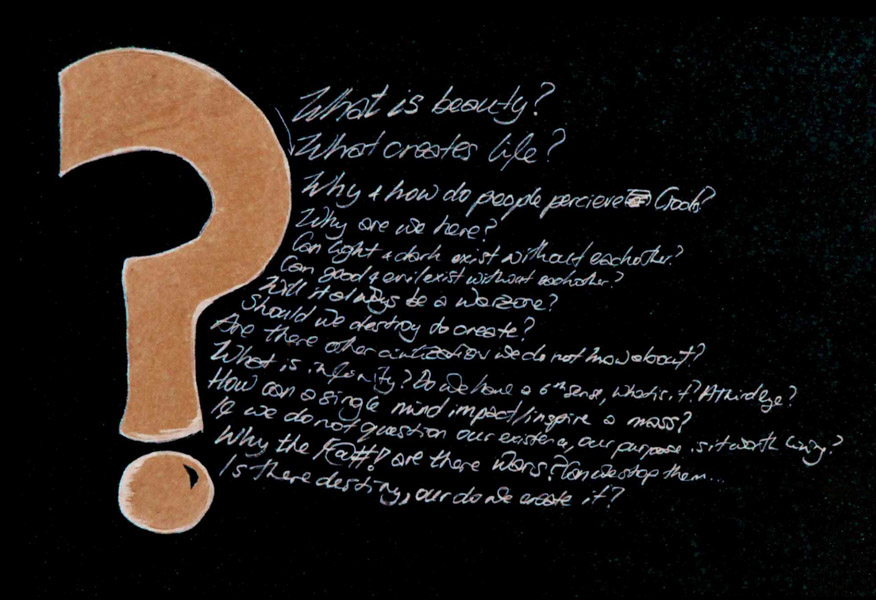 What is beauty?
What creates life?
Why & how do people percieve God?
Why are we here?
Can light & dark exist without eachother?
Can good & evil exist without eachother?
Will it always be a warzone?
Should we destroy to create?
Are there other civilization we do not know about?
What is infinity? Do we have a 6th sense, what is it? A third eye?
How can a single mind impact/inspire a mass?
If we do not question our existence, our purpose is it worth living?
Why the F@#! are there wars? Can we stop them...
Is there destiny, our do we create it?